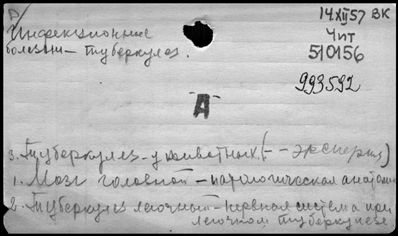 14 XII 57 ВК
Инфекционные
болезни – туберкулез.
Чит
510156
993592
А
3. Туберкулез – у животных (– – экспери)
1. Мозг головной – патологическая анатоми
2. Туберкулез легочный – нервная система при
легочном туберкулезе